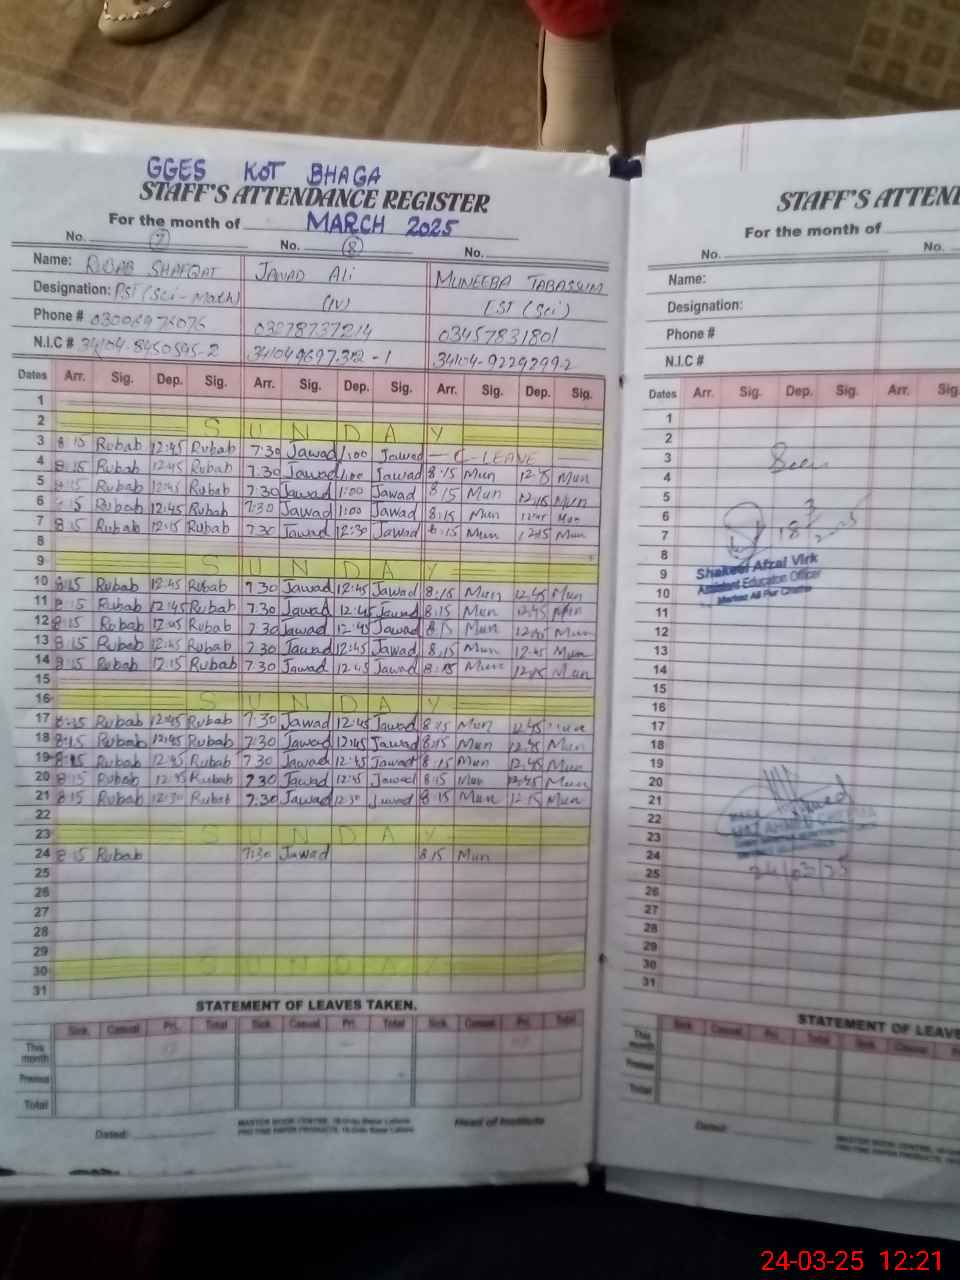 GGES KOT BHAGA
STAFF'S ATTENDANCE REGISTER
For the month of MARCH 2025
No. 7 No. 8 No.
Name: RUBAB SHAFQAT JAWAD Ali MUNEEBA TABASSUM
Designation: PST (Sci-Math) (IV) EST (Sci)
Phone # 03457831801
N.I.C # 34104-8450595-2
Dates Arr. Sig. Dep. Sig. Arr. Sig. Dep. Sig. Arr. Sig. Dep. Sig.
1
2 SUNDAY
3 8 15 Rubab 12:45 Rubab 7:30 Jawad 1:00 Jawad — C-LEAVE —
4 8:15 Rubab 12:45 Rubab 7.30 Jawad 1:00 Jawad 8:15 Mun 12:45 Mun
5 8:15 Rubab 12:45 Rubab 7.30 Jawad 1:00 Jawad 8:15 Mun 12:45 Mun
6 8:15 Rubab 12:45 Rubab 7:30 Jawad 1:00 Jawad 8:15 Mun 12:45 Mun
7 8:15 Rubab 12:15 Rubab 7.30 Jawad 12:30 Jawad 8:15 Mun 12:15 Mun
8
9 SUNDAY
10 8:15 Rubab 12:45 Rubab 7.30 Jawad 12:45 Jawad 8:15 Mun 12.45 Mun
11 8:15 Rubab 12:45 Rubab 7.30 Jawad 12:45 Jawad 8:15 Mun 12:45 Mun
12 8:15 Rubab 12:45 Rubab 7.30 Jawad 12:45 Jawad 8:15 Mun 12:45 Mun
13 8:15 Rubab 12:45 Rubab 7.30 Jawad 12:45 Jawad 8:15 Mun 12:45 Mun
14 8:15 Rubab 12:15 Rubab 7:30 Jawad Jawad 8:15 Mun 12:15 Mun
15
16 SUNDAY
17 8:15 Rubab 12:45 Rubab 7:30 Jawad 12:45 Jawad 8:15 Mun 12.45
18 8:15 Rubab 12:45 Rubab 7:30 Jawad 12:45 Jawad 8:15 Mun 12.45 Mun
19 8:15 Rubab 12:45 Rubab 7.30 Jawad 12:45 Jawad 8:15 Mun 12.45 Mun
20 8:15 Rubab 12:45 Rubab 7.30 Jawad 12:45 Jawad 8:15 Mun 12.45 Mun
21 8:15 Rubab 12:30 Rubab 7:30 Jawad 12:30 Jawad 8:15 Mun 12:15 Mun
22
23 SUNDAY
24 8:15 Rubab 7:30 Jawad 8:15 Mun
25
26
27
28
29
30 SUNDAY
31
STATEMENT OF LEAVES TAKEN.
Sick. Casual Pri. Total Sick. Casual Pri. Total Sick. Casual Pri. Total
This month
Previous
Total
Dated:
Head of Institute
STAFF'S ATTEN
For the month of
No. No.
Name:
Designation:
Phone #
N.I.C #
Dates Arr. Sig. Dep. Sig. Arr. Sig
1
2
3 Seen
4
5
6
7
8
Shakeel Afzal Virk
9 Assistant Education Officer
10
11
12
13
14
15
16
17
18
19
20
21
22
23
24 24/03/25
25
26
27
28
29
30
31
STATEMENT OF LEAVE
Sick. Casual Pri. Total Sick. Casual Pri.
This month
Previous
Total
Dated:
24-03-25 12:21